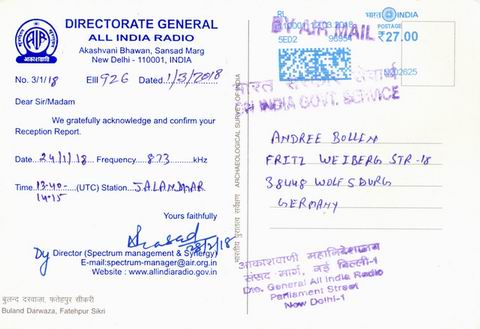 DIRECTORATE GENERAL
ALL INDIA RADIO
Akashvani Bhawan, Sansad Marg
New Delhi - 110001, INDIA
No. 3/1/18 EIII 926 Dated 1/3/2018
Dear Sir/Madam
We gratefully acknowledge and confirm your
Reception Report.
Date 24/1/18 Frequency 873 kHz
Time 13:40- (UTC) Station JALANDHAR
14:15
Yours faithfully
28/2/18
Dy Director (Spectrum management & Synergy)
E-mail:spectrum-manager@air.org.in
Website : www.allindiaradio.gov.in
बुलन्द दरवाजा, फतेहपुर सीकरी
Buland Darwaza, Fatehpur Sikri
ARCHAEOLOGICAL SURVEY OF INDIA
भारतीय पुरातत्व सर्वेक्षण
BY AIR MAIL
भारत INDIA
₹27.00
5E02
भारत सरकार सेवार्थ
INDIA GOVT. SERVICE
ANDREE BOLLEN
FRITZ WEIBERG STR-18
38448 WOLFSBURG
GERMANY
आकाशवाणी महानिदेशालय
संसद मार्ग, नई दिल्ली-1
Dte. General All India Radio
Parliament Street
New Delhi-1